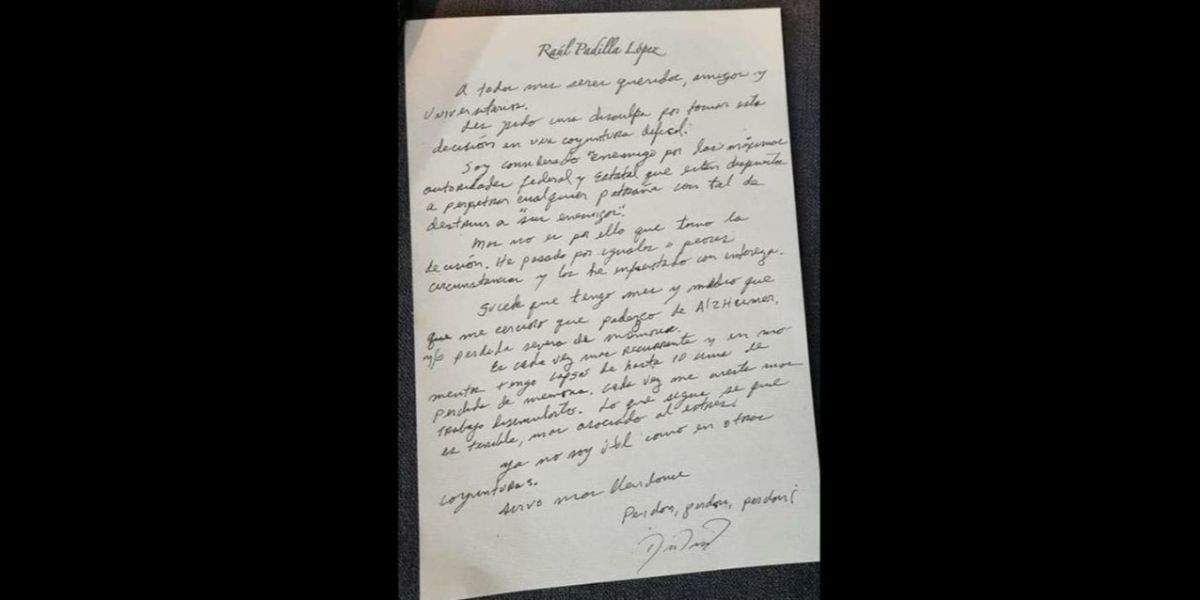 Raúl Padilla López
A todos mis seres queridos, amigos y
Universitarios.
Les pido una disculpa por tomar esta
decisión en una coyuntura difícil.
Soy considerado "enemigo por las máximas
autoridades federal y Estatal que están dispuestos
a perpetrar cualquier patraña con tal de
destruir a "sus enemigos".
Mas no es por ello que tomo la
decisión. He pasado por iguales o peores
circunstancias y las he enfrentado con entereza.
Sucede que tengo mes y medio que
que me cercioro que padezco de AlzHeimer,
y/o perdida severa de memoria.
Es cada vez mas recurrente y en mo
mentos tengo lapsos de hasta 10 de
perdida de memoria. Cada vez me cuesta mas
trabajo disimularlo. Lo que sigue se que
es terrible, mas asociado al estres.
Ya no soy útil como en otras
coyunturas.
Sirvo mas
Perdon, perdon, perdon!